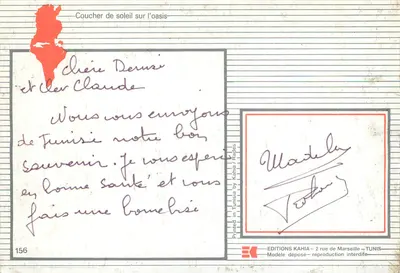 Coucher de soleil sur l'oasis
Chère Denise
et Cher Claude
Nous vous envoyons
de Tunisie notre bon
souvenir. Je vous espère
en bonne santé et vous
fais une bonne bise
156
EDITIONS KAHIA - 2 rue de Marseille - TUNIS
Modèle déposé - reproduction interdite